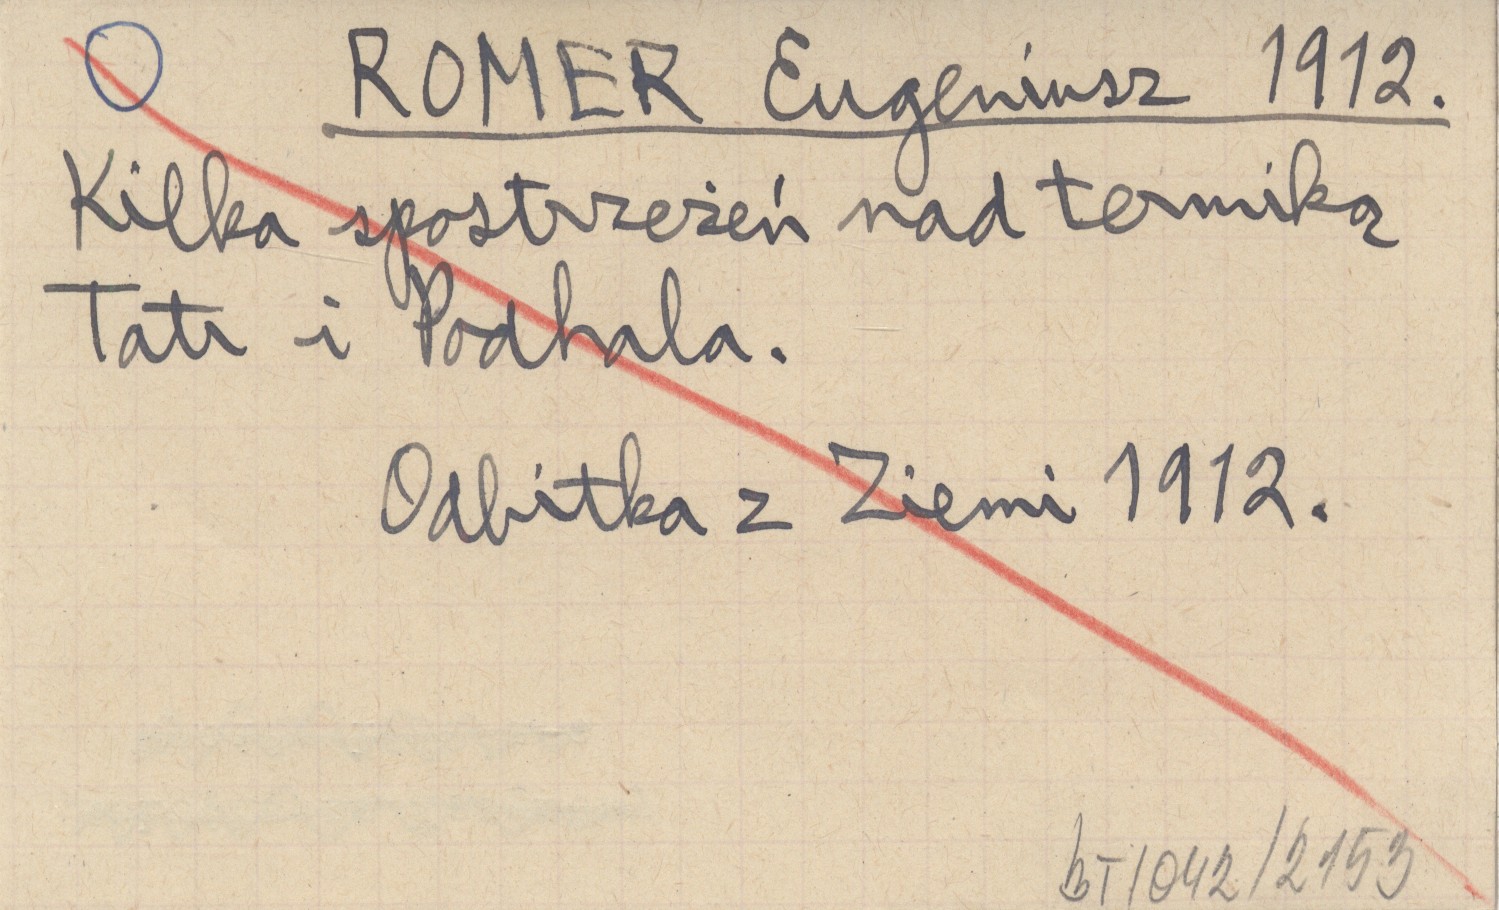 ROMER Eugeniusz 1912.
Kilka spostrzeżeń nad termiką
Tatr i Podhala.
Odbitka z Ziemi 1912.
bT/042/2153